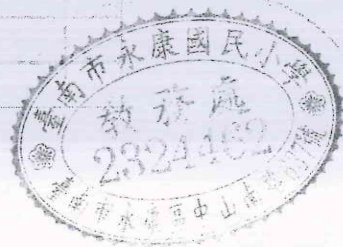 臺南市永康國民小學
教務處
2324462
臺南市永康區中山南路